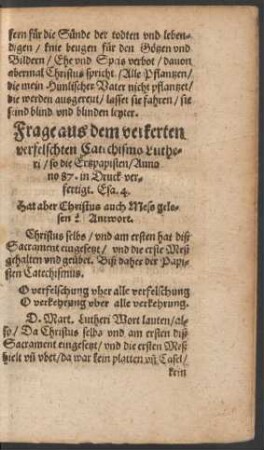 fern für die Sünde der todten vnd leben-
digen / knie beugen für den Götzen vnd
Bildern / Ehe vnd Speis verbot / dauon
abermal Christus spricht / Alle Pflantzen /
die mein Himlischer Vater nicht pflantzet /
die werden ausgereut / lasset sie fahren / sie
seind blind vnd blinden leyter.
Frage aus dem verkerten
verfelschten Catechismo Luthe-
ri / so die Ertzpapisten / Anno
no 87. in Druck ver-
fertigt. Esa. 4.
Hat aber Christus auch Mess gele-
sen? Antwort.
Christus selbs / vnd am ersten hat diß
Sacrament eingesetzt / vnd die erste Meß
gehalten vnd geübet. Biß daher der Papi-
sten Catechismus.
O verfelschung vber alle verfelschung
O verkehrung vber alle verkehrung.
D. Mart. Lutheri Wort lauten / al-
so / Da Christus selbs vnd am ersten diß
Sacrament eingesetzt / vnd die ersten Mess
hielt vñ vbet / da war kein platten vñ Casel /
kein